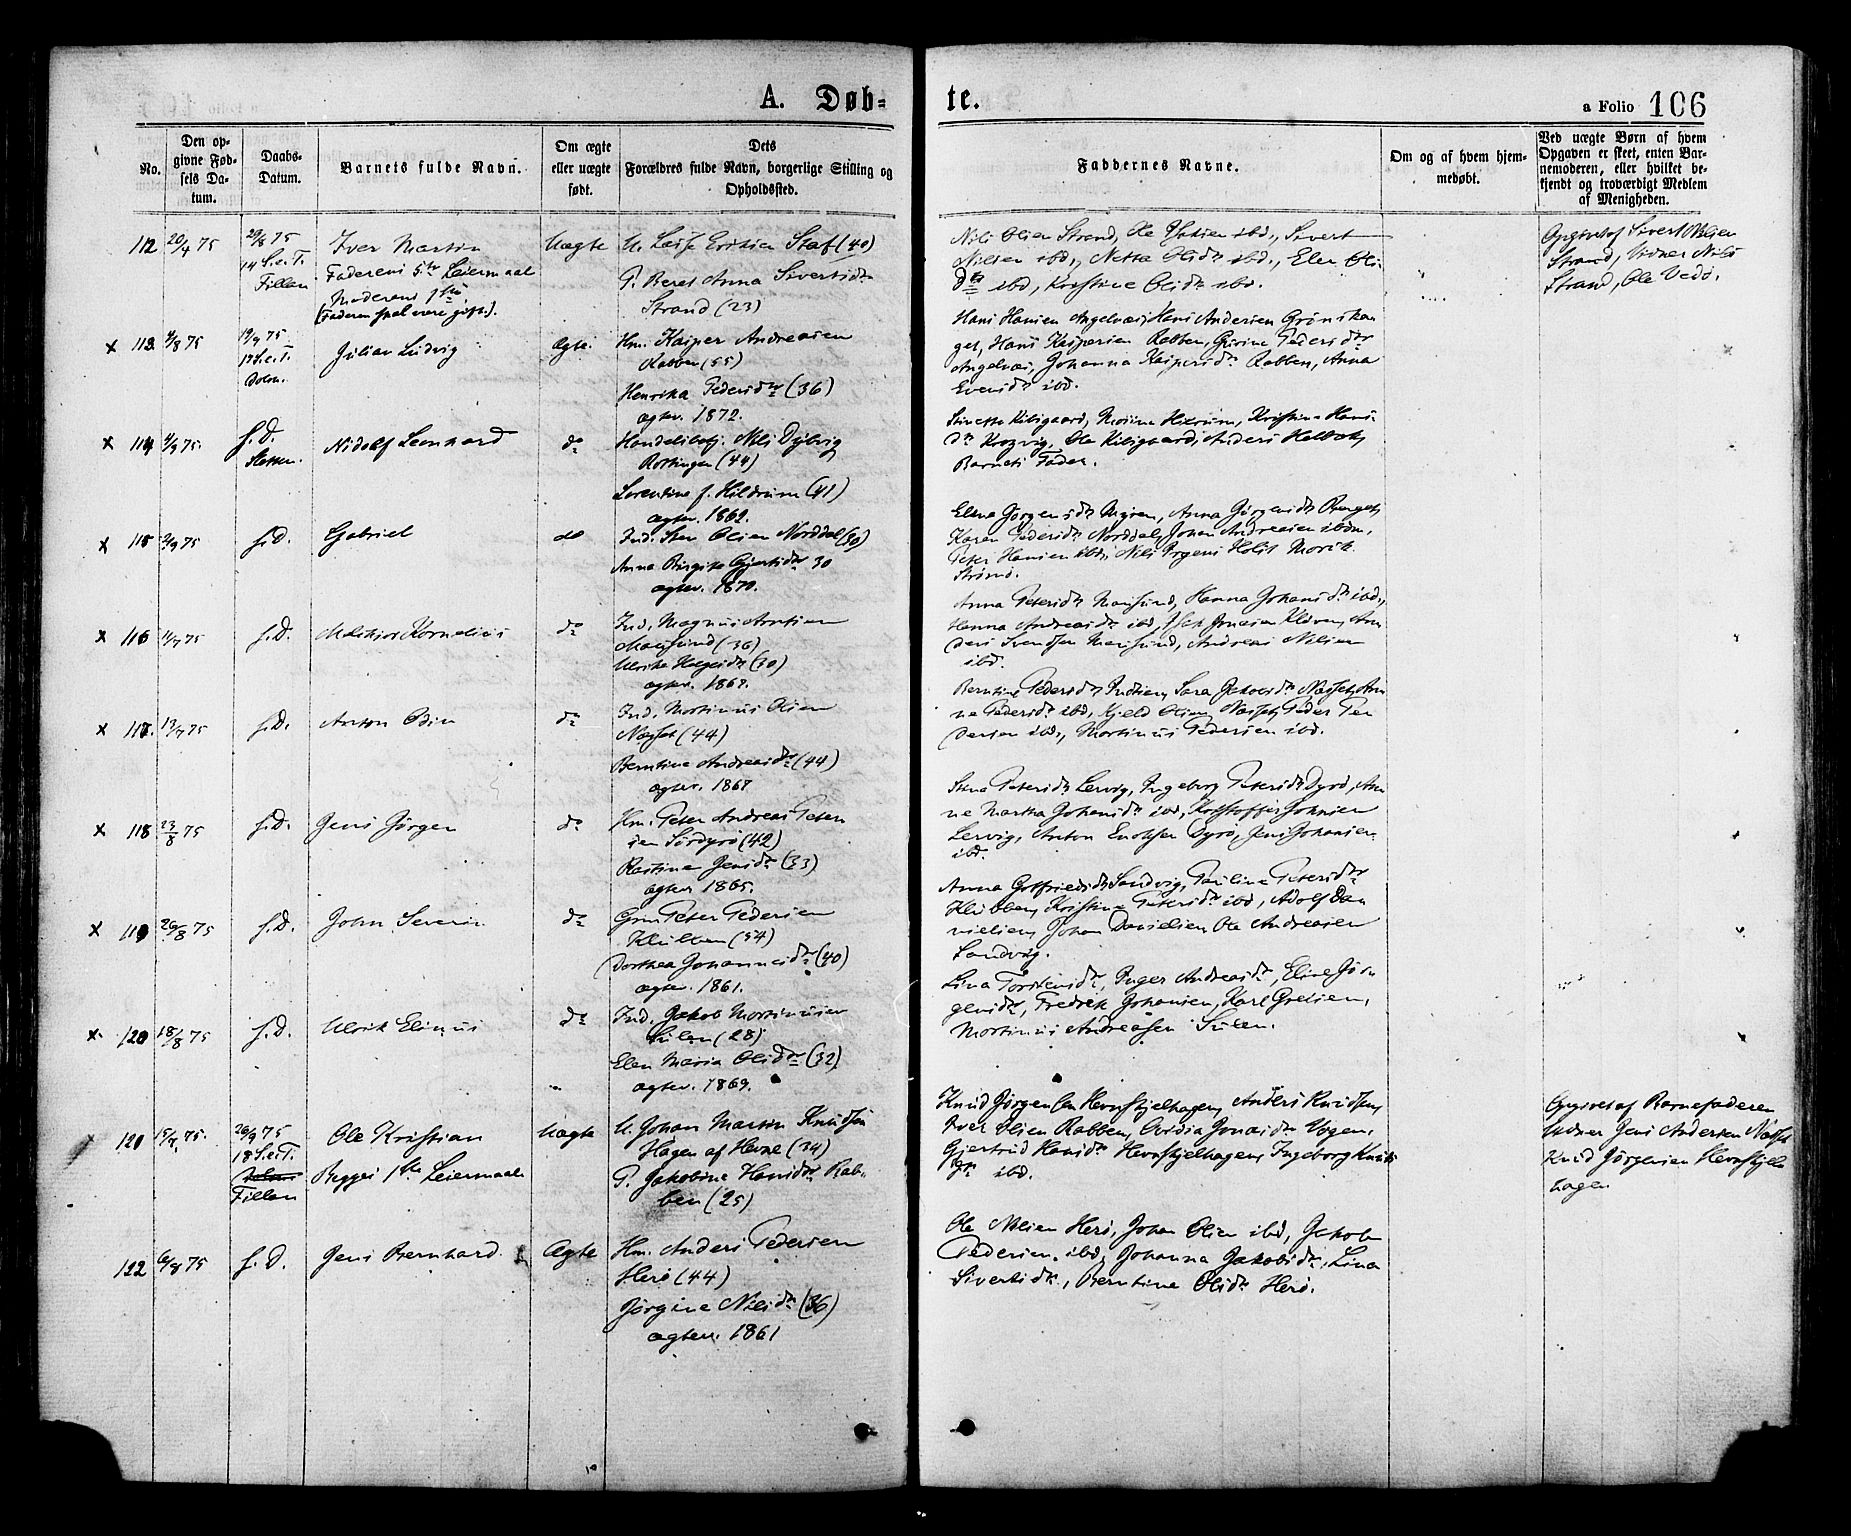 A. Døb=
te.
a Folio 106
No.
Den op-
givne Fød-
sels Da-
tum.
Daabs-
Datum.
Barnets fulde Navn.
Om ægte
eller uægte
født.
Dets
Forældres fulde Navn, borgerlige Stilling og
Opholdssted.
Faddernes Navne.
Om og af hvem hjem-
medøbt.
Ved uægte Børn af hvem
Opgaven er skeet, enten Bar-
nemoderen, eller hvilket be-
kjendt og troværdigt Medlem
af Menigheden.
112 20/4 75
29/8 75
14 S.e.T.
Fillan
Iver Martin
Faderens 5te Leiermaal
Moderens 1ste
(Faderen skal være gift.)
Uægte
(40)
P. Beret Anna Sivertsdr
Strand (23)
Nils Olsen Strand, Ole ibd., Sivert
Nilsen ibd., Netta Olsdr ibd., Elen Ols
dr ibd, Kristine Olsdr ibd.
Opgivet af Sivert Nilsen
Strand, Vidner Nils
Strand, Ole Vedø.
x 113 4/8 75
19/9 75
17 S.e.T.
Dolm.
Julian Ludvig
Ægte.
Hm. Kasper Andreasen
Rabben (55)
Henrika Pedersdr (36)
agtev. 1872.
Hans Hansen Angelvær, Hans Andersen Grønskar
get, Hans Kaspersen Rabben, Gurine Pedersdr
Angelvær, Johanna Kaspersdr Rabben, Anna
Evensdr ibd.
x 114 4/9 75.
s. D.
Sletten.
Nidolf Leonhard
do
Handelsbetj. Nils Dybvig
(44)
Serentine f. Hildrum (41)
agtev. 1862.
Kristine Hans
dr Krogvig, Ole Kilsgaard, Anders Holbæk,
Barnets Fader.
x 115 2/9 75
s. D.
Gabriel
do
Ind. Sten Olsen Norddal (30)
Anna Birgite Gjertsdr 30
agtev. 1870.
Elena Jørgensdr Myren, Anna Jørgensdr Berget,
Karen Pedersdr Norddal, Johan Andreasen ibdm,
Peter Hansen ibd, Nils Holst
Strømø.
x 116 11/7 75
s. D.
Melchior Kornelius
do
Ind. Magnus Arntsen
Mausund (36)
Ulrika Holgersdr (30)
agtev. 1867.
Anna Petersdr Mausund, Hanna Johansdr ibd.,
Hanna Andreasdr ibd, Isak Jonasen Kloven, An
ders Svendsen Mausund, Andreas Nilsen
ibd.
x 117. 13/7 75
s. D.
Anton Odin
do
Ind. Mortinus Olsen
Næsset (44)
Berntine Andreasdr (44)
agtev. 1867
Berntine Pedersdr Indtian, Sara Jakobsdr Næsset, An
ne Pedersdr ibd, Kjeld Olsen Næsset, Peder Pe
dersen ibd., Mortinus Pedersen ibd.
x 118 23/8 75
s. D.
Jens Jørgen
do
Hm. Peter Andreas Peter
sen Sørdyrø (42)
Rastine Jensdr (33)
agtev. 1865.
Stina Petersdr Lervig, Ingeborg Petersdr Dyrø, An
ne Martha Johansdr ibd, Kristoffer Johnsen
Lervig, Anton Enoksen Dyrø, Jens Johansen
ibd.
x 119 26/8 75
s. D.
John Severin
do
Grm. Peter Pedersen
Klubben (54)
Dorthea Johannesdr (40)
agtev. 1861.
Anna Gotfriedsdr Sandvig, Pauline Petersdr
Klubben, Kristine Petersdr ibd, Adolf Da
nielsen, Johan Danielsen, Ole Andreasen
Sandvig.
x 120 18/8 75
s. D.
Ulrik Elinus
do
Ind. Jakob Mortinusen
Sulen (28)
Elen Maria Olsdr (32)
agtev. 1869.
Lina Torstensdr, Inger Andreasdr, Eline Jør
gensdr, Fredrik Johansen, Karl Gretsen,
Mortinus Andreassen Sulen.
x 120 15/7 75.
26/9 75
18 S.e.T.
Dolm.
Fillan
Ole Kristian
Begges 1ste Leiermaal
Uægte
U. Johan Martin Knudsen
Hagen af Hevne (34)
P. Jakobine Hansdr Rab-
ben (25)
Knud Jørgensen Hevnskjelhagen, Anders Knudsen,
Iver Olsen Rabben, Ovidia Jonasdr Vogen,
Gjertrud Hansdr Hevnskjelhagen, Ingeborg Knuds
dr ibd.
Opgivet af Barnefaderen
Vidner Jens Andersen
Knud Jørgensen Hevnskjel
hagen
122 6/8 75
s. D.
Jens Bernhard
Ægte
Hm. Anders Pedersen
Herø (44)
Jørgine Nilsdr (36)
agtev. 1861
Ole Nilsen Herø, Johan Olsen ibd, Jakob
Pedersen ibd, Johanna Jakobsdr, Lina
Sivertsdr, Berntine Olsdr Herø.